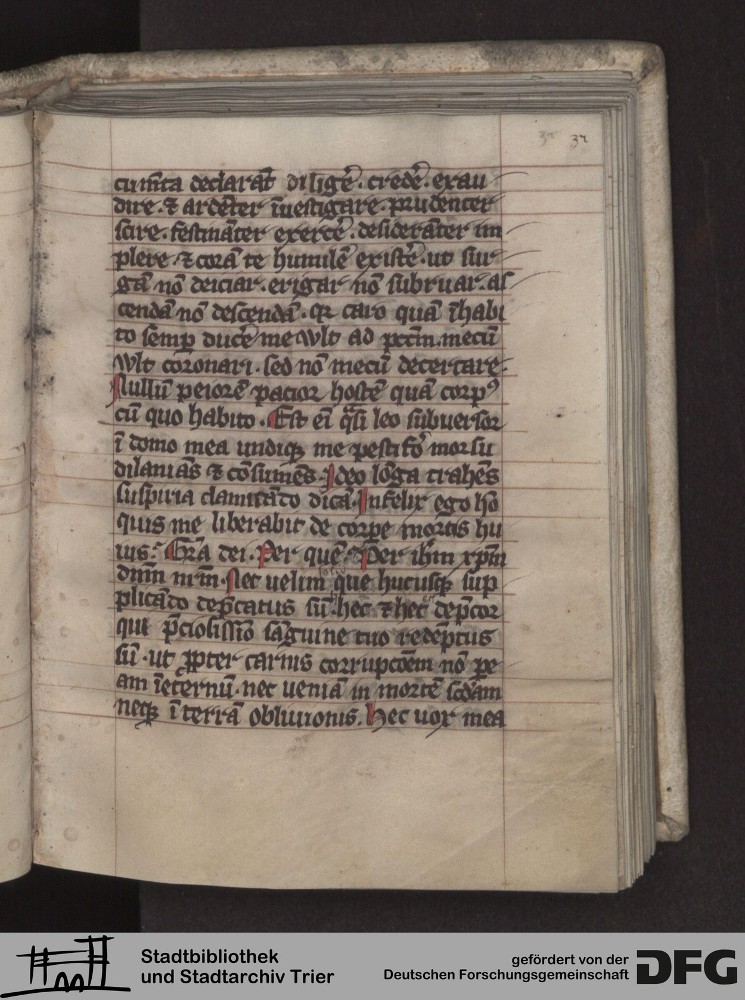 37 37
cumta declarat̃ diligẽ. credẽ. exau
dire. ⁊ ardẽter ĩuestigare. prudenter
scire. festinãter exercẽ. desiderãter im
plere. ⁊ corã te humilẽ existẽ. ut sur
gã nõ deiciar. erigar nõ subruar. as
cendã nõ descendã. caro quã ĩhabi
to semꝑ ducẽ me wlt ad pctm̃. mecũ
wlt coronari. sed nõ mecũ decertare.
Nullũ peiorẽ pacior hostẽ quã corpꝰ
cũ quo habito. Est eĩ q̃si leo subuersor
ĩ domo mea undiqꝫ me pestifo morsu
dilaniãs ⁊ cõsumẽs. Ideo lõga trahẽs
suspiria clamitãdo dicã. Infelix ego hõ
quis me liberabit de corpe mortis hu
ius. Gr̃a dei. Per quẽ. Per ihm̃ xpm̃
dnm̃ nrm̃. Nec uelim que hucusqꝫ sup
plicãdo dep̃catus sũ. hec ⁊ hec dep̃cor
qui p̃ciosissĩo sãguine tuo redẽptus
sũ. ut ꝓpter carnis corrupcõem nõ pe
am ĩeternũ. nec ueniã in mortẽ scd̃am
neqꝫ ĩ terrã obliuionis. Hec uox mea
Stadtbibliothek
und Stadtarchiv Trier
gefördert von der
Deutschen Forschungsgemeinschaft DFG